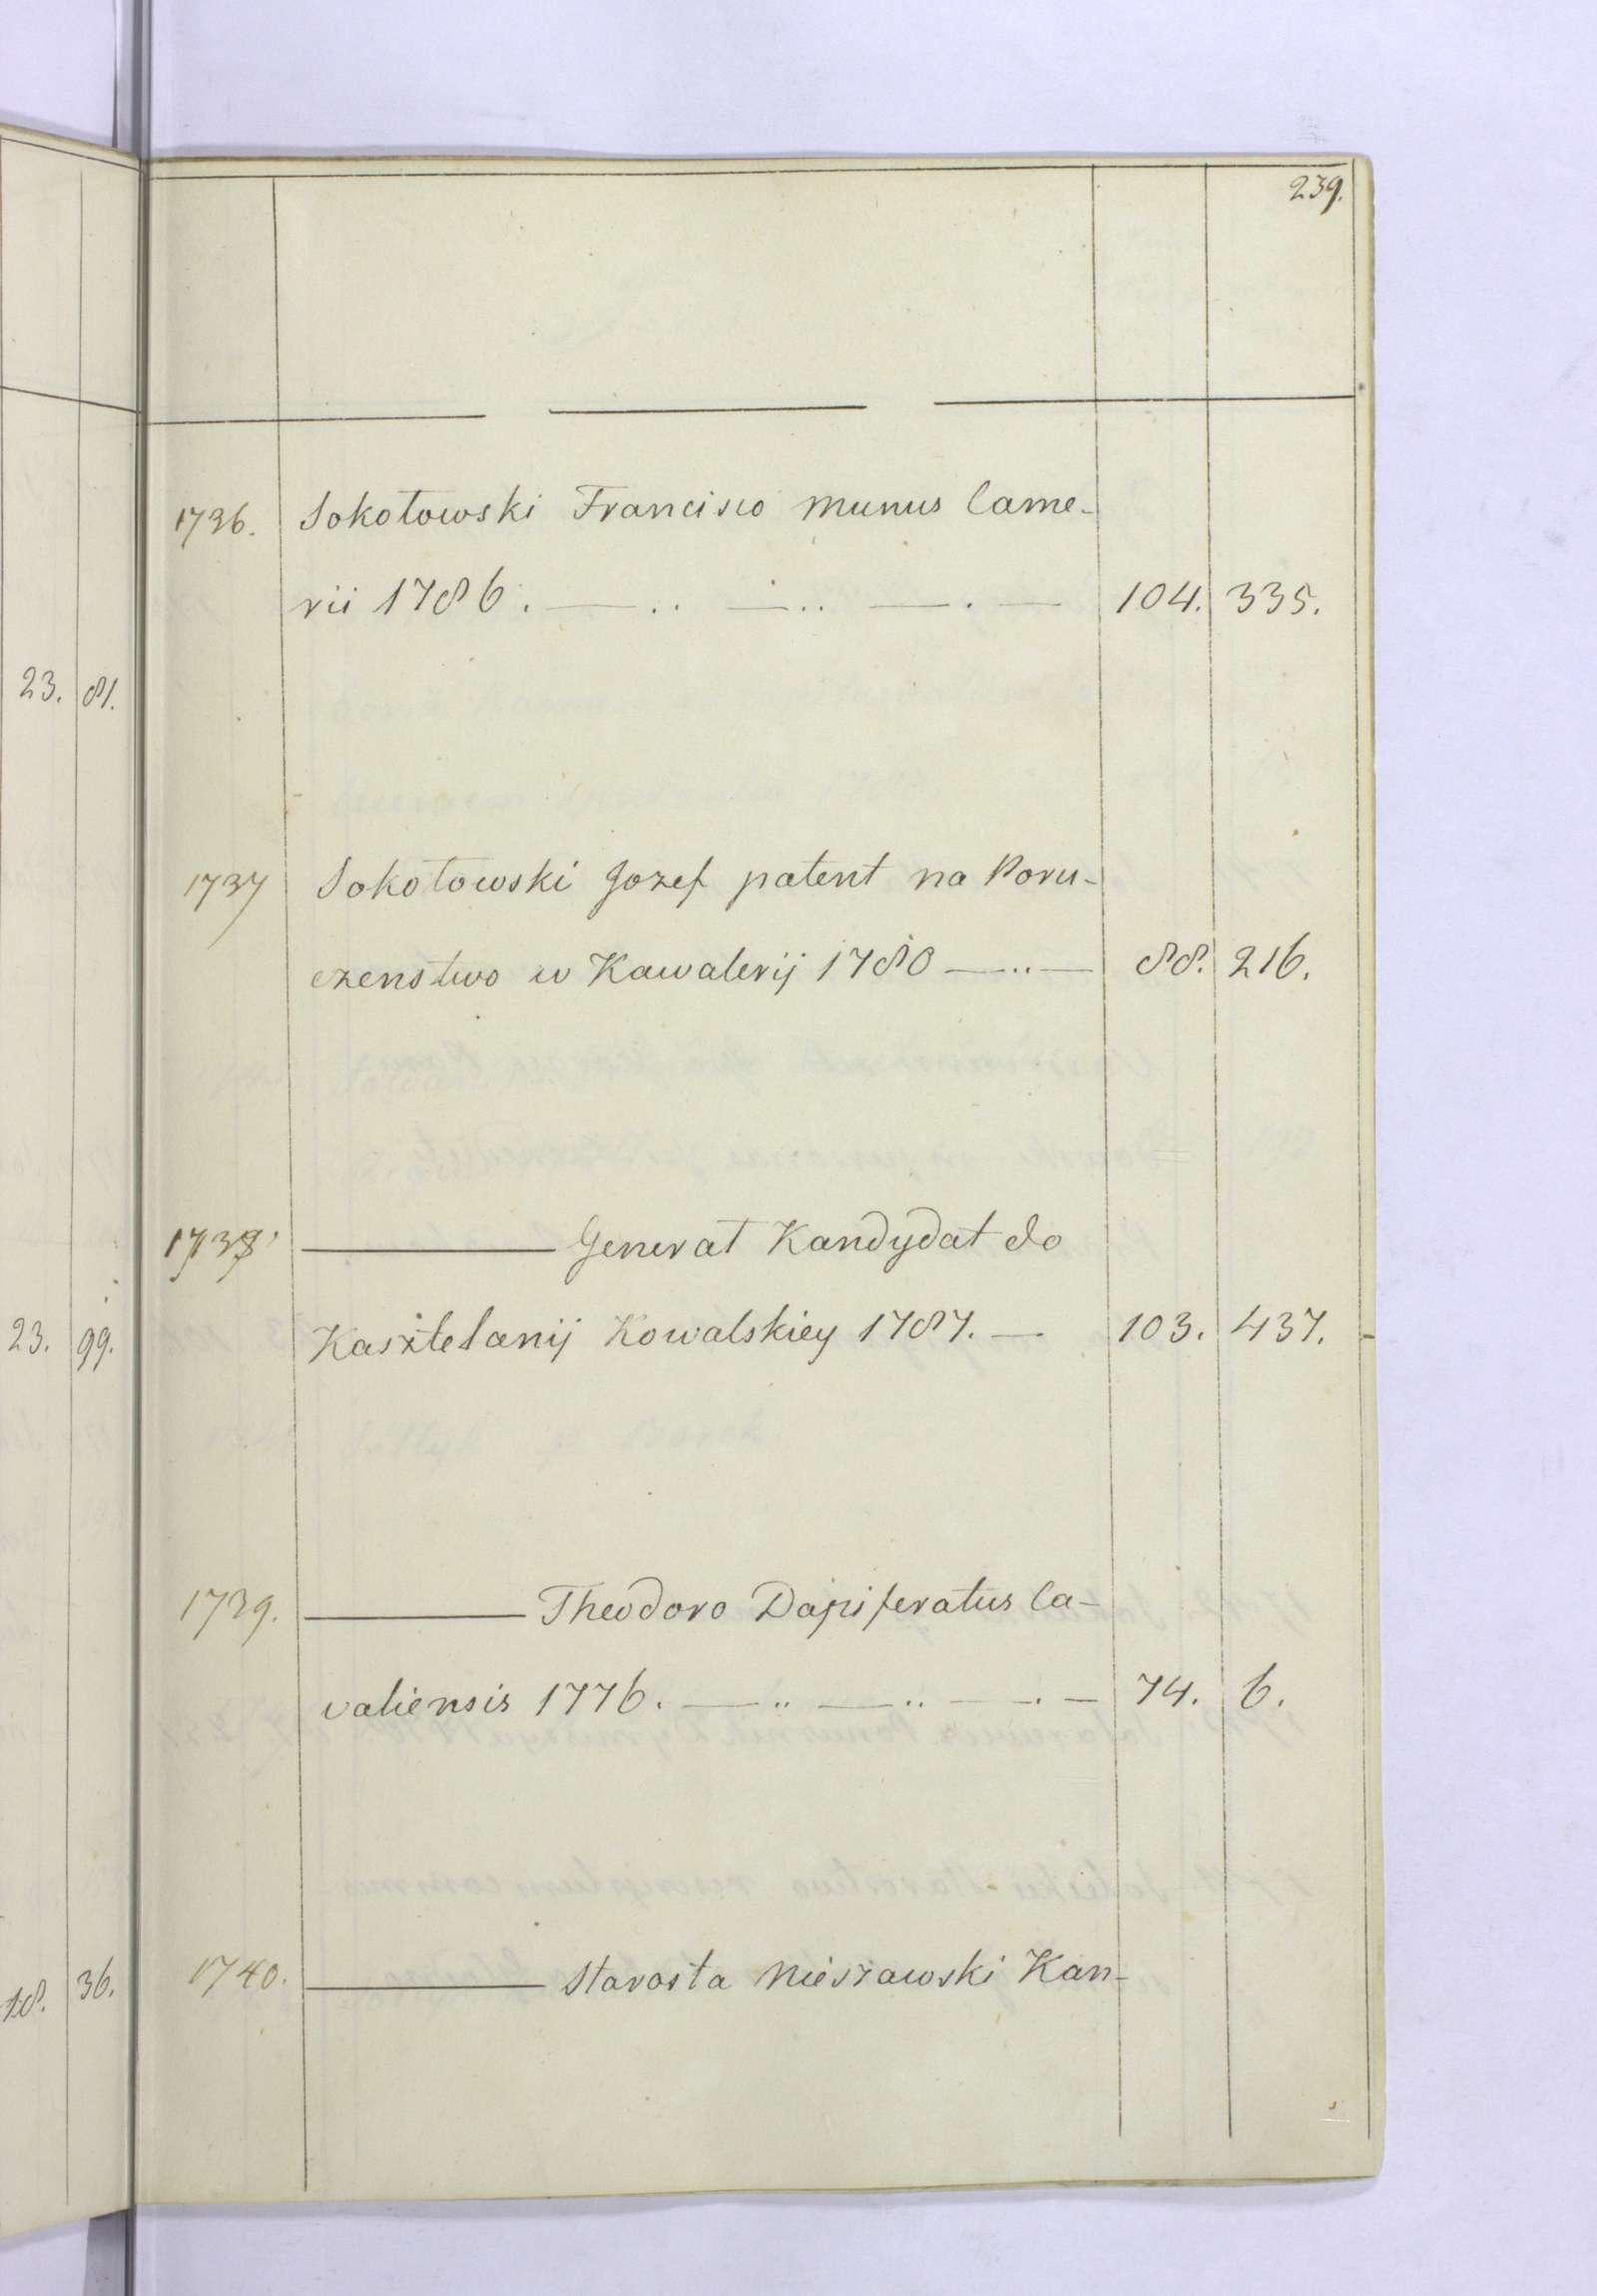 239.
1736. Sokołowski Francisco munus Came-
rii 1786. 104. 335.
1737 Sokołowski Jozef patent na Poru-
czenstwo w Kawalerij 1780 88. 216.
1738. Generał Kandydat do
Kasztelanij Kowalskiey 1787. 103. 437.
1739. Theodoro Dapiferatus Ca-
valiensis 1776. 74. 6.
1740. Starosta Nieszawski Kan-
23. 81.
23. 99.
18. 36.